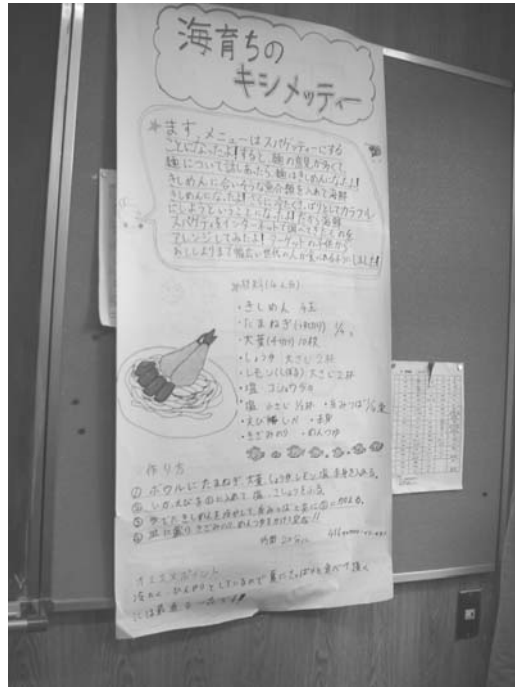 海育ちの
キシメッティー
★まず、メニューはスパゲッティーにする
ことになったよ!すると、麺の意見が多くて、
麺について話しあったら、麺はきしめんになったよ!
きしめんに合いそうな魚介類を入れて海鮮
きしめんになったよ!さらに冷たくさっぱりとしてカラフル
にしようということになったよ!だから海鮮
スパゲティをインターネットで調べてきたものを
アレンジしてみたよ!ターゲットの子供から
お年よりまで幅広い世代の人が食べれるようにしました!
材料(4人分)
・きしめん 4玉
・たまねぎ
・大葉(千切り)10枚
・しょうゆ 大さじ2杯
・レモン(しぼる)大さじ2杯
・塩 コショウ少々
・塩 小さじ1/2杯 ・糸みつば
・えび ・いか
・きざみのり ・めんつゆ
作り方
① ボウルにたまねぎ、大葉、しょうゆ、レモン、塩
② いか、えびを①に入れて、塩、こしょうをふる。
③ ゆでたきしめんを冷やして、糸みつばと共に②に加える。
④ 皿に盛り、きざみのり、めんつゆをかけて完成!!
オススメポイント
冷たく、ひんやりとしているので夏にさっぱりと食べて頂く
には最適な一品